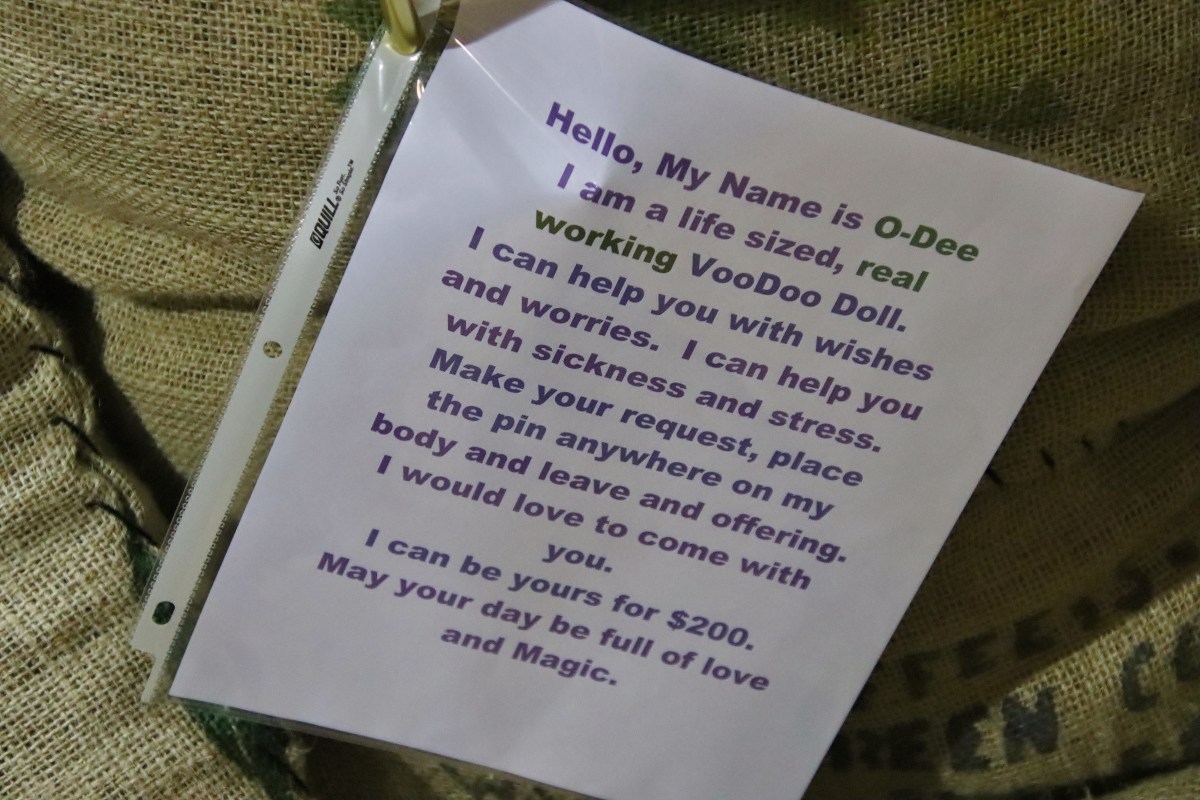 Hello, My Name is O-Dee
I am a life sized, real
working VooDoo Doll.
I can help you with wishes
and worries. I can help you
with sickness and stress.
Make your request, place
the pin anywhere on my
body and leave and offering.
I would love to come with
you.
I can be yours for $200.
May your day be full of love
and Magic.
QUILL